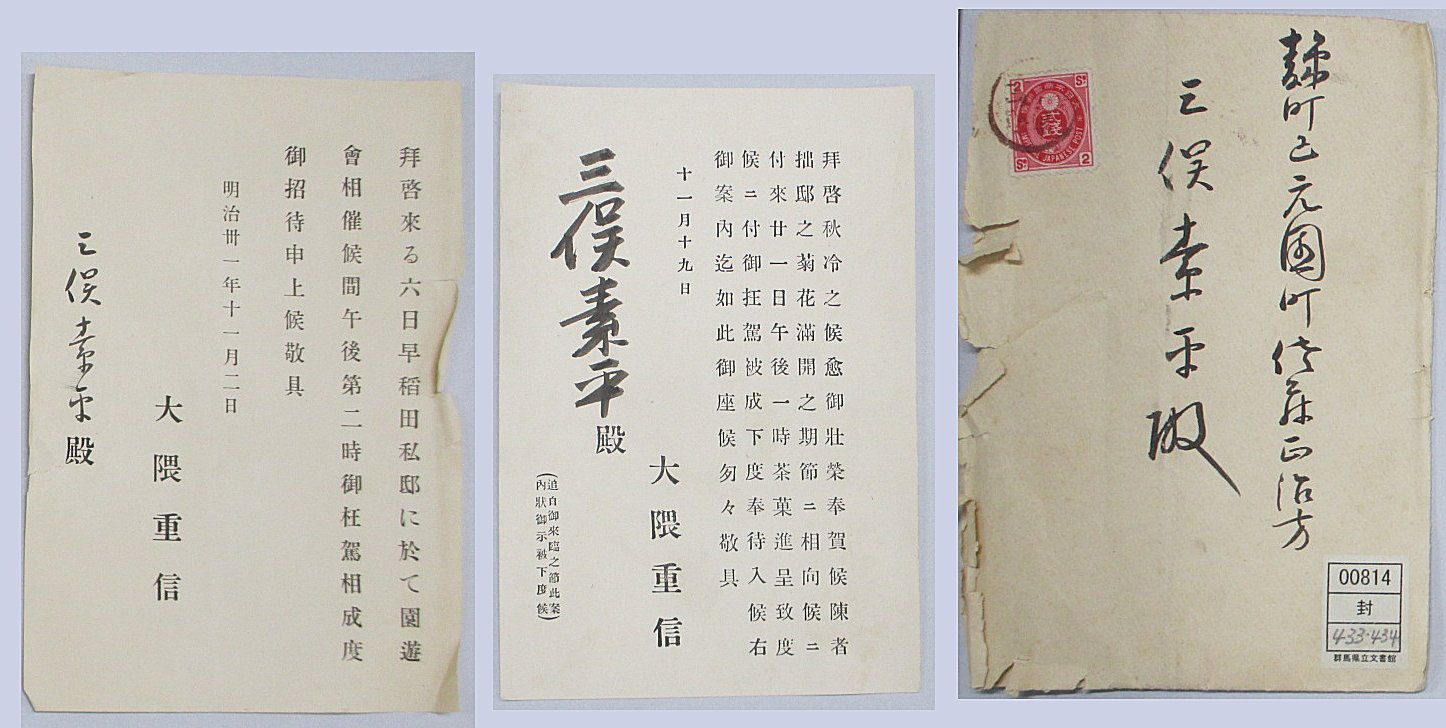 拜啓來る六日早稲田私邸に於て園遊
會相催候間午後第二時御枉駕相成度
御招待申上候敬具
明治卅一年十一月二日
大隈重信
三俣素平殿
拜啓秋冷之候愈御壯榮奉賀候陳者
拙邸之菊花滿開之期節ニ相向候ニ
付來廿一日午後一時茶菓進呈致度
候ニ付御抂駕被成下度奉待入候右
御案內迄如此御座候匆々敬具
十一月十九日
大隈重信
三俣素平殿
(追白御來臨之節此案
內狀御示被下度候)
麹町区元園町佐藤正治方
三俣素平殿
2 Sɴ
貳錢
JAPANESE POST
Sɴ 2
00814
封
433・434
群馬県立文書館